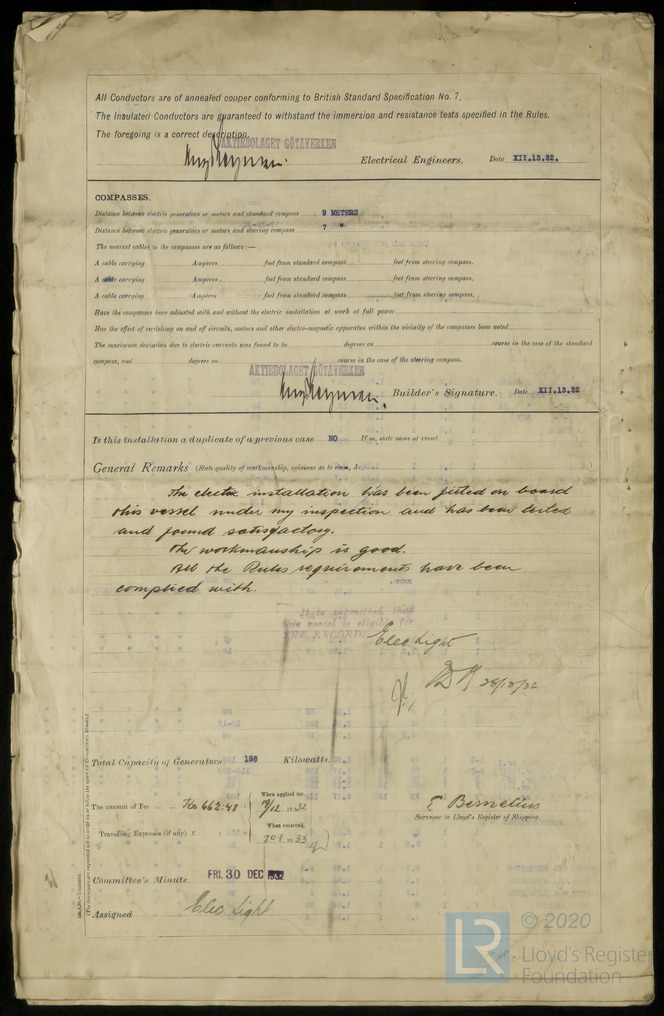 All Conductors are of annealed copper conforming to British Standard Specification No. 7.
The Insulated Conductors are guaranteed to withstand the immersion and resistance tests specified in the Rules.
The foregoing is a correct description,
AKTIEBOLAGET GÖTAVERKEN
Electrical Engineers. Date XII.13.32.
COMPASSES.
Distance between electric generators or motors and standard compass 9 METERS
Distance between electric generators or motors and steering compass 7 "
The nearest cables to the compasses are as follows:—
A cable carrying Ampères feet from standard compass feet from steering compass.
A cable carrying Ampères feet from standard compass feet from steering compass.
A cable carrying Ampères feet from standard compass feet from steering compass.
Have the compasses been adjusted with and without the electric installation at work at full power
Has the effect of switching on and off circuits, motors and other electro-magnetic apparatus within the vicinity of the compasses been noted
The maximum deviation due to electric currents was found to be degrees on course in the case of the standard
compass, and degrees on course in the case of the steering compass.
AKTIEBOLAGET GÖTAVERKEN
Builder's Signature. Date XII.13.32
Is this installation a duplicate of a previous case NO If so, state name of vessel
General Remarks (State quality of workmanship, opinions as to class, &c.
The electric installation has been fitted on board
this vessel under my inspection and has been tested
and found satisfactory.
The workmanship is good.
All the Rules requirements have been
complied with.
It is submitted that
this vessel is eligible for
THE RECORD
Elec. Light
28/12/32
Total Capacity of Generators 198 Kilowatts.
The amount of Fee ... ... Kr 662:48 : When applied for, 19 32
Travelling Expenses (if any) £ : : When received, 20.1. 19 33
Surveyor to Lloyd's Register of Shipping.
Committee's Minute FRI. 30 DEC 1932
Assigned Elec. Light
© 2020
LR Lloyd's Register
Foundation